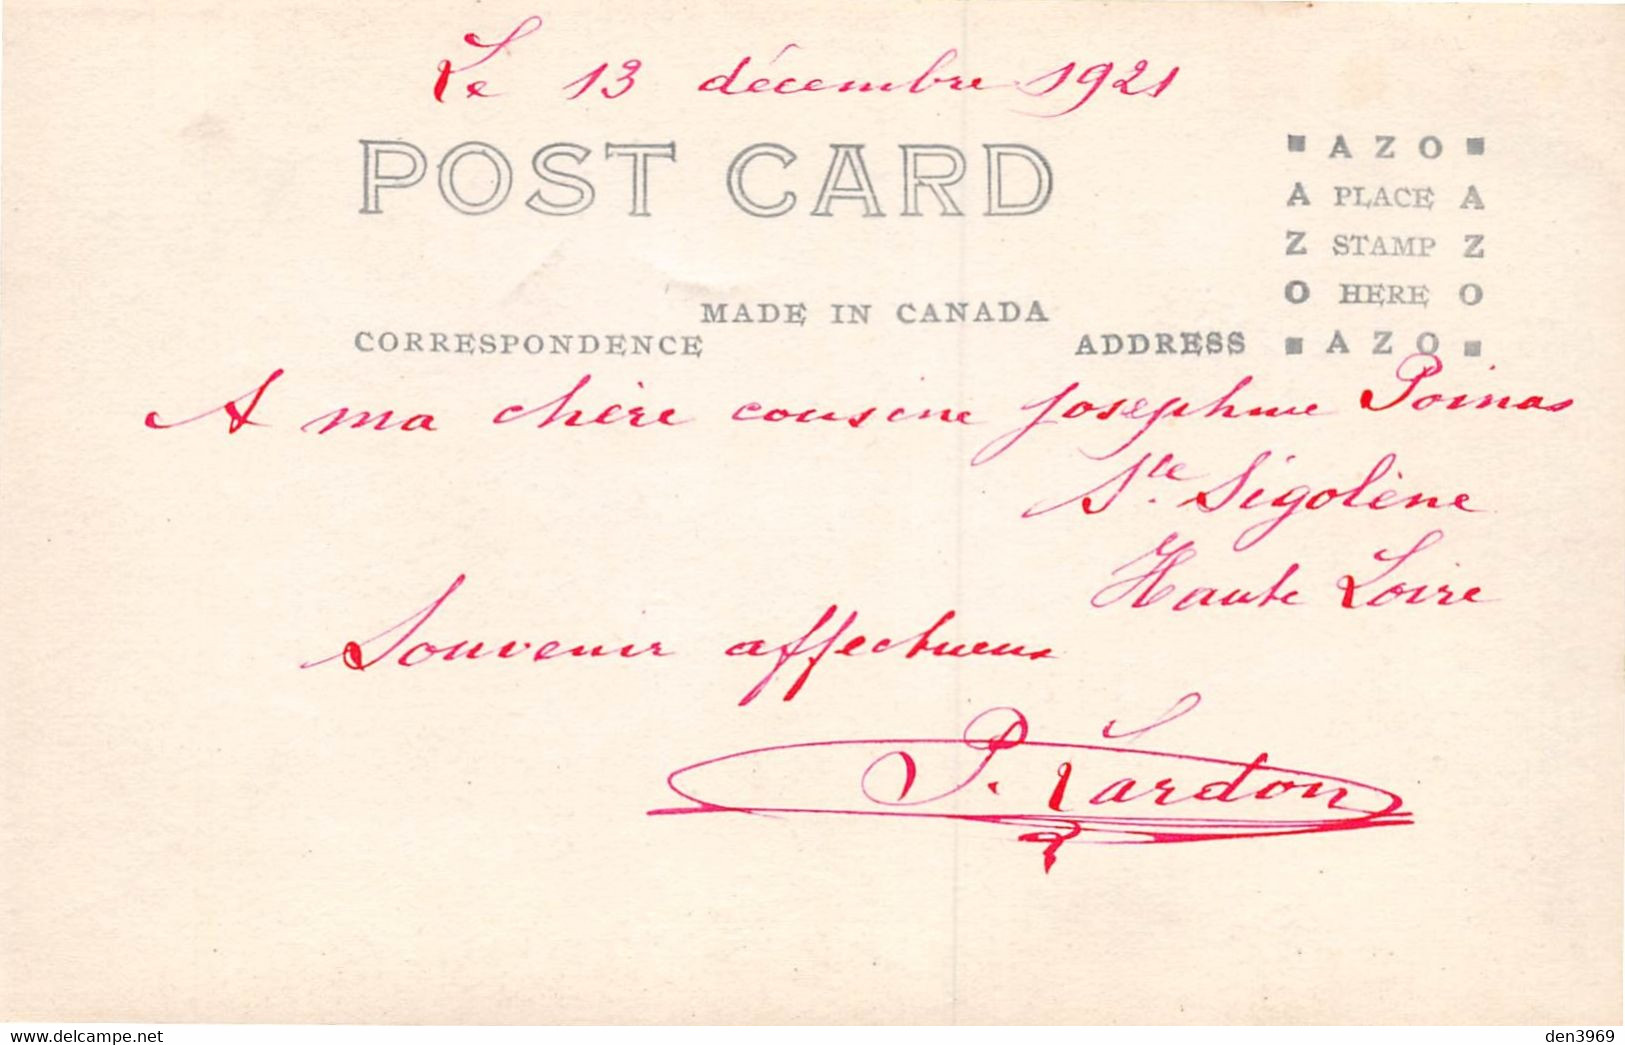 Le 13 décembre 1921
POST CARD
■ A Z O ■
A PLACE A
Z STAMP Z
O HERE O
■ A Z O ■
MADE IN CANADA
CORRESPONDENCE
ADDRESS
A ma chère cousine Josephine Poinas
Ste Sigolène
Haute Loire
Souvenir affectueux
P. Lardon
delcampe.net
den3969